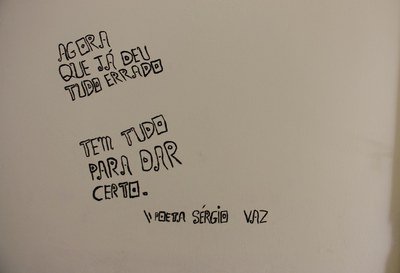 AGORA
QUE JÁ DEU
TUDO ERRADO
TEM TUDO
PARA DAR
CERTO.
\\ POETA SÉRGIO VAZ